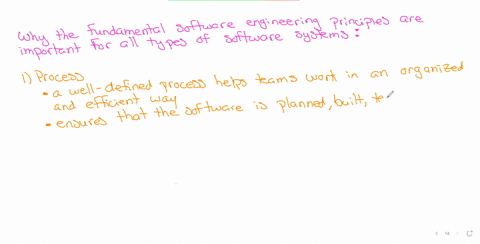 Why the fundamental software engineering principles are
important for all types of software systems:
1) Process
• a well-defined process helps teams work in an organized
and efficient way
• ensures that the software is planned, built,